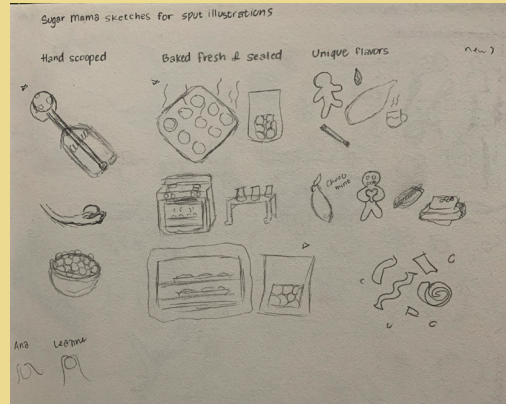 Sugar mama sketches for sput illustrations
Hand scooped
Baked fresh & sealed
Unique flavors
new?
Choco
mint
Ana
Leanne